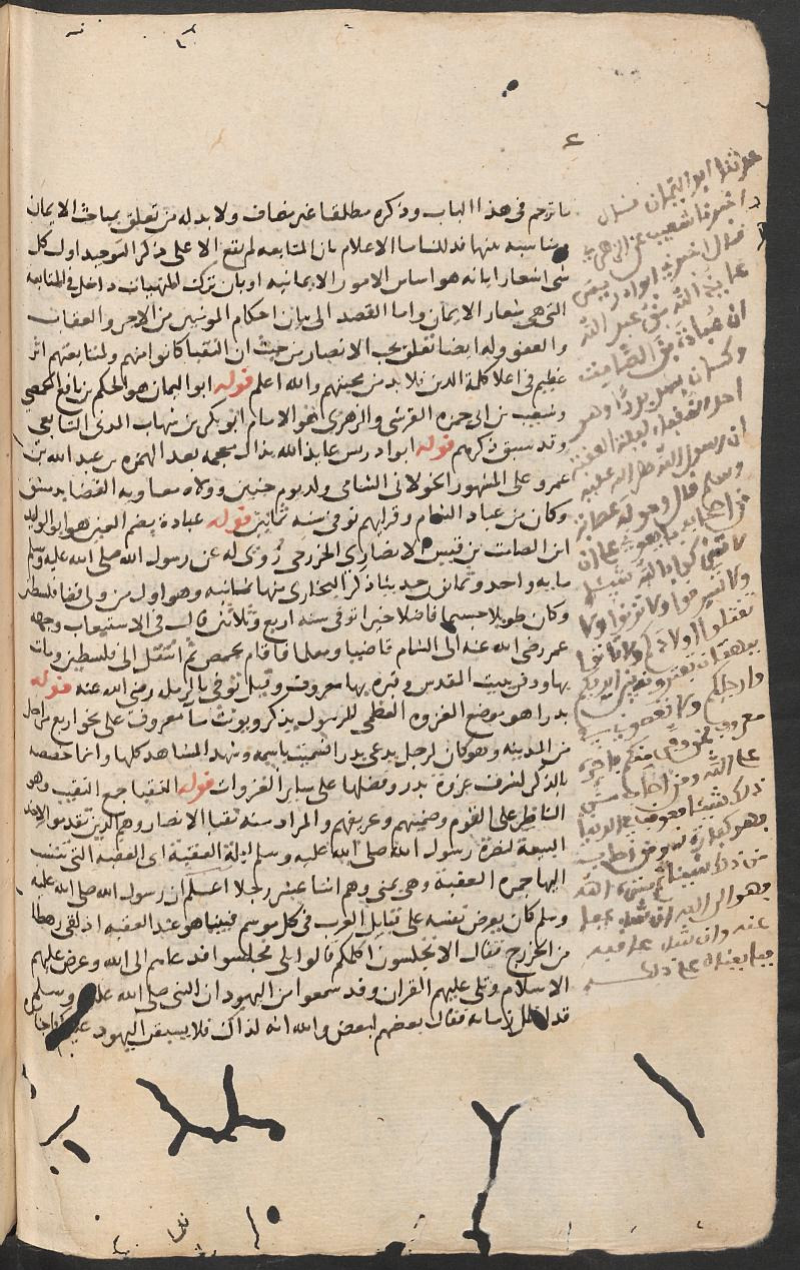 ما ترجم في هذا الباب وذكره مطلقا غير مضاف ولا بد له من تعلق بمباحث الايمان
ومناسبه بينها قد للناسا الاعلام بان المتابعه لم تقع الا على ذكر التوحيد اول كل
شي اشعارا بانه هو اساس الامور الايمانيه او بان ترك المنهيات داخل في المتابعه
التي هي شعار الايمان واما القصد الى بيان احكام المومنين من الاجر والعقاب
والعفو وله ايضا تعلق بحب الانصار من حيث ان النقبا كانوا منهم ولمتابعتهم اثر
عظيم في اعلا كلمة الدين فلا بد من محبتهم والله اعلم قوله ابو اليمان هو الحكم بن نافع الحمصي
وشعيب بن ابي حمزه القرشي والزهري هو الامام ابو بكر بن شهاب المدني التابعي
وقد سبق ذكرهم قوله ابو ادريس عايذ الله بذال معجمه بعد الهمزه بن عبد الله بن
عمرو على المشهور الخولاني الشامي ولد يوم حنين وولاه معاويه القضا بدمشق
وكان من عباد الشام وقرايهم توفي سنه ثمانين قوله عبادة بضم العين هو ابو الوليد
ابن الصامت بن قيس الانصاري الخزرجي رُوى له عن رسول الله صلى الله عليه وسلم
مايه واحد وثمانون حديثا ذكر البخاري منها ثمانيه وهو اول من ولي قضا فلسطين
وكان طويلا جسيما فاضلا خيرا توفي سنه اربع وثلاثين قال في الاستيعاب وجهه
عمر رضي الله عنه الى الشام قاضيا ومعلما فاقام بحمص ثم انتقل الى فلسطين ومات
بها ودفن ببيت المقدس وقبره بها معروف وقيل توفي بالرمله رضي الله عنه قوله
بدرا هو موضع الغزوه العظمى للرسول يذكر ويونث ما معروف على نحو اربع مراحل
من المدينه وهو كان لرجل يدعى بدرا فسميت باسمه وشهد المشاهد كلها وانما خصصه
بالذكر لشرف غزوة بدر وفضلها على ساير الغزوات قوله النقبا جمع النقيب وهو
الناظر على القوم وضمينهم وعريفهم والمراد منه نقبا الانصار وهم الذين تقدموا لاخذ
البيعة لنصرة رسول الله صلى الله عليه وسلم ليلة العقبة اى العقبه التي تنسب
اليها جمره العقبة وهي بمنى وهم اثنا عشر رجلا اعلم ان رسول الله صلى الله عليه
وسلم كان يعرض نفسه على قبايل العرب في كل موسم فبينا هو عند العقبه اذ لقى رهطا
من الخزرج فقال الا تجلسون اكلمكم قالوا بلى فجلسوا فدعاهم الى الله وعرض عليهم
الاسلام وتلى عليهم القران وقد سمعوا من اليهود ان النبي صلى الله عليه وسلم
قد اظل زمانه فقال بعضهم لبعض والله انه لذاك فلا يسبقن اليهود
حدثنا ابو اليمان قال
اخبرنا شعيب عن الزهري
قال اخبرني ابو ادريس
عايذ الله بن عبد الله
ان عُبادة بن الصَّامِت
وكان شهد بدرًا وهو
احد النقباء ليلة العقبة
ان رسول الله صلى الله عليه
وسلم قال وحوله عصابة
من اصحابه بايعوني على ان
لا تشركوا بالله شيئا
ولا تسرقوا ولا تزنوا ولا
تقتلوا اولادكم ولا تاتوا
ببهتان تفترونه بين ايديكم
وارجلكم ولا تعصوا في
معروف فمن وفى منكم فاجره
على الله ومن اصاب من
ذلك شيئا فعوقب في الدنيا
فهو كفارة له ومن اصاب
من ذلك شيئا ثم ستره الله
فهو الى الله ان شاء عفا
عنه وان شاء عاقبه
فبايعناه على ذلك